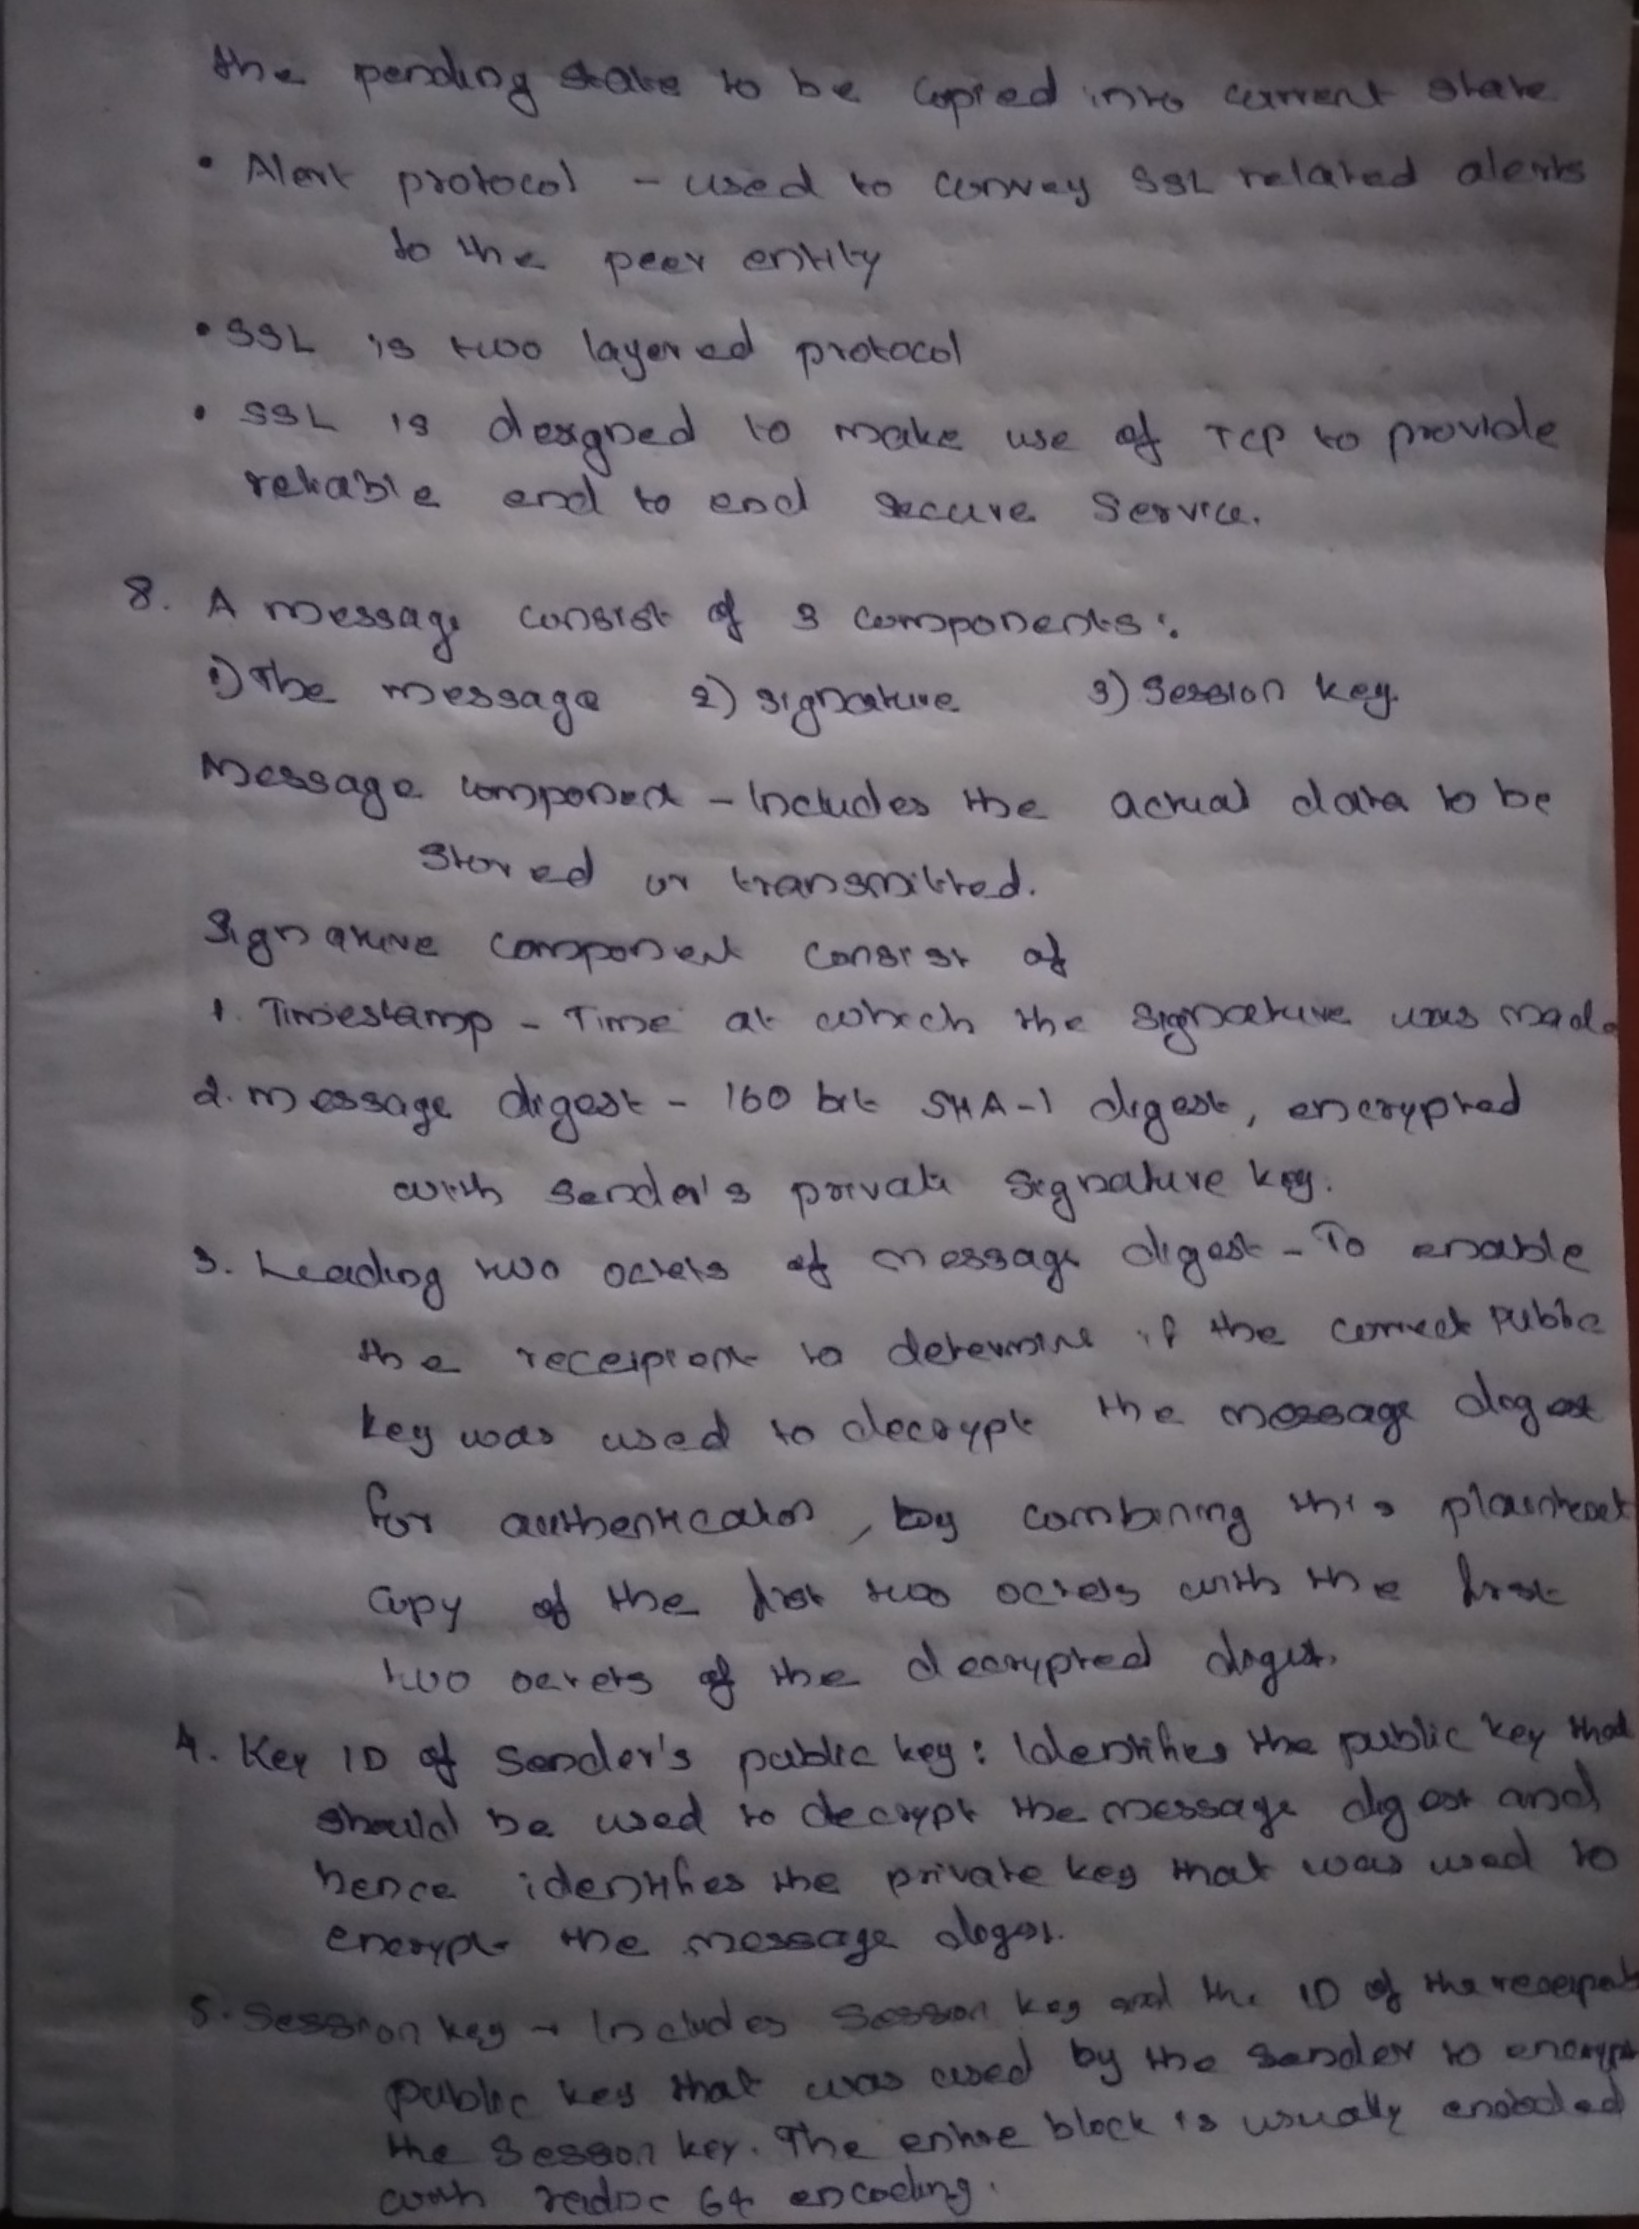 the pending state to be copied into current state
• Alert protocol - used to convey SSL related alerts
to the peer entity
• SSL is two layered protocol
• SSL is designed to make use of TCP to provide
reliable end to end secure service.
8. A message consist of 3 components:
1) The message 2) signature 3) Session key.
Message component - Includes the actual data to be
stored or transmitted.
Signature component consist of
1. Timestamp - Time at which the signature was made
2. message digest - 160 bit SHA-1 digest, encrypted
with sender's private signature key.
3. Leading two octets of message digest - To enable
the receipient to determine if the correct public
key was used to decrypt the message digest
for authentication, by combining this plaintext
copy of the first two octets with the first
two octets of the decrypted digest.
4. Key ID of Sender's public key: Identifies the public key that
should be used to decrypt the message digest and
hence identifies the private key that was used to
encrypt the message digest.
5. Session key → Includes session key and the ID of the receipent
public key that was used by the sender to encrypt
the session key. The entire block is usually encoded
with radix 64 encoding.